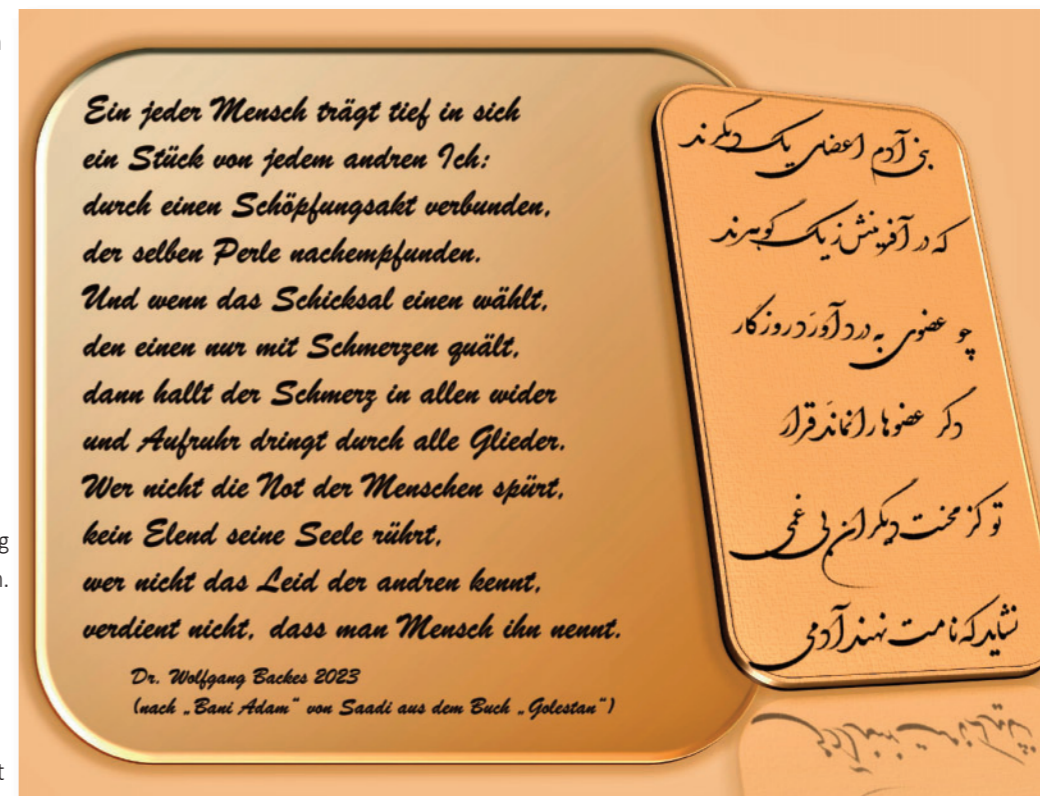 Ein jeder Mensch trägt tief in sich
ein Stück von jedem andren Ich:
durch einen Schöpfungsakt verbunden,
der selben Perle nachempfunden.
Und wenn das Schicksal einen wählt,
den einen nur mit Schmerzen quält,
dann hallt der Schmerz in allen wider
und Aufruhr dringt durch alle Glieder.
Wer nicht die Not der Menschen spürt,
kein Elend seine Seele rührt,
wer nicht das Leid der andren kennt,
verdient nicht, dass man Mensch ihn nennt.
Dr. Wolfgang Backes 2023
(nach „Bani Adam" von Saadi aus dem Buch „Golestan")
بنی آدم اعضای یک دیگرند
که در آفرینش ز یک گوهرند
چو عضوی به درد آوَرَد روزگار
دگر عضوها را نمانَد قرار
تو کز محنت دیگران بی غمی
نشاید که نامت نهند آدمی